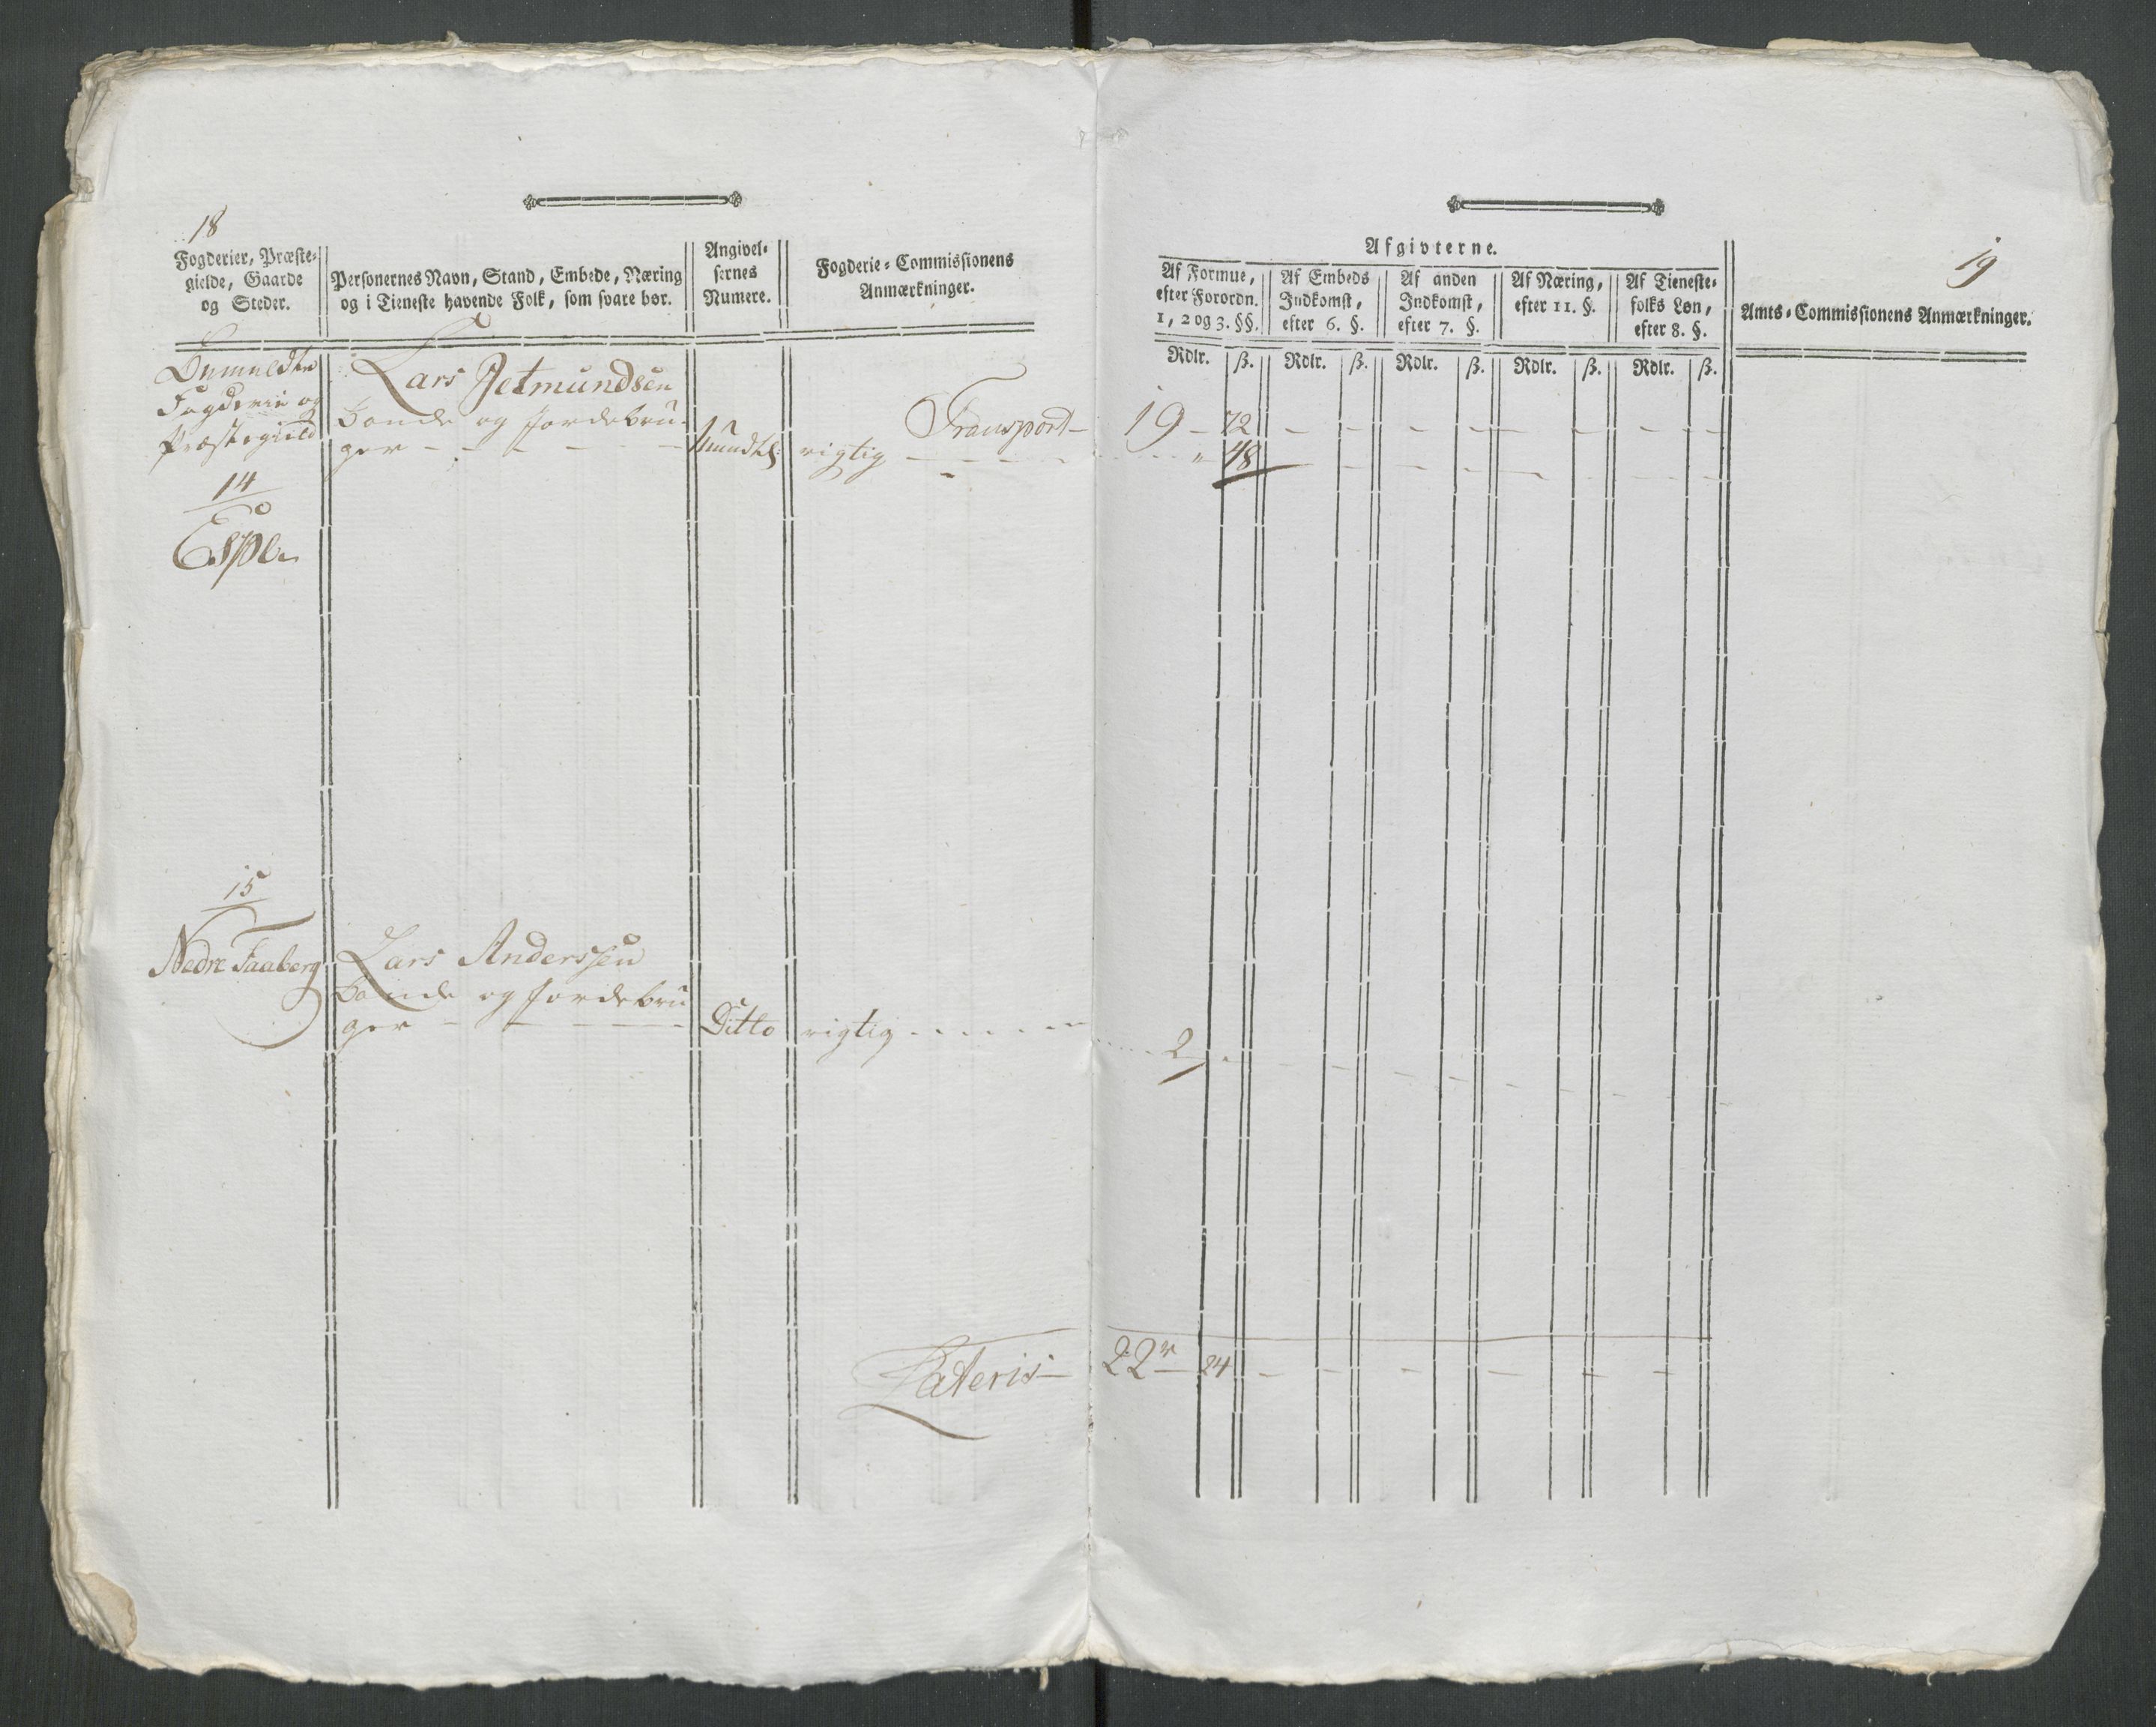 18
Fogderier, Præste-
gielde, Gaarde
og Steder.
Personernes Navn, Stand, Embede, Næring
og i Tieneste havende Folk, som svare bør.
Angivel-
sernes
Numere.
Fogderie-Commissionens
Anmærkninger.
Fogderie og
Præstegield
Lars Jetmundsen
Bonde og Jordebru-
ger - - - - -
Mundtl:
Transport -
rigtig - - - -
14
Espe
15
Nedre Faaberg
Lars Anderssen
Bonde og Jordebru
ger - - - -
Ditto
rigtig - - - - -
Lateris -
19
Afgivterne.
Af Formue,
efter Forordn.
1, 2 og 3. §§.
Af Embeds
Indkomst,
efter 6. §.
Af anden
Indkomst,
efter 7. §.
Af Næring,
efter 11. §.
Af Tieneste-
folks Løn,
efter 8. §.
Amts-Commissionens Anmærkninger.
Rdlr. ß. Rdlr. ß. Rdlr. ß. Rdlr. ß. Rdlr. ß.
19 - 72 - - - - - - - -
" 48 - - - - - - - -
2 - - - - - - - -
22 - 24 - - - - - - -